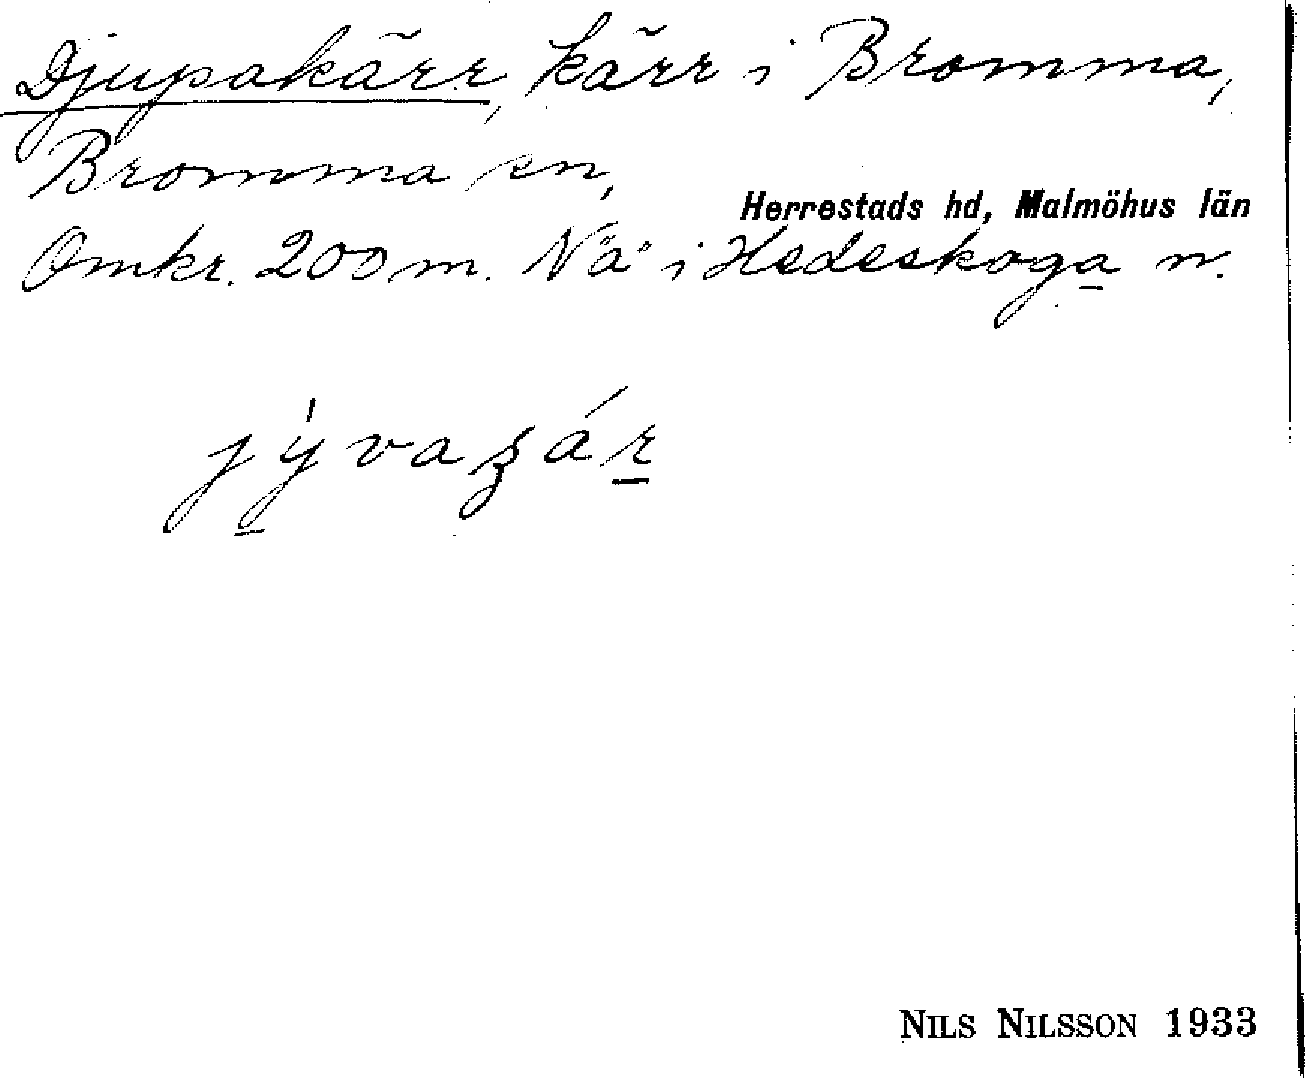 Djupakärr, kärr i Bromma,
Bromma sn,
Herrestads hd, Malmöhus län
Omkr. 200 m. Nä i Hedeskoga n.
NILS NILSSON 1933